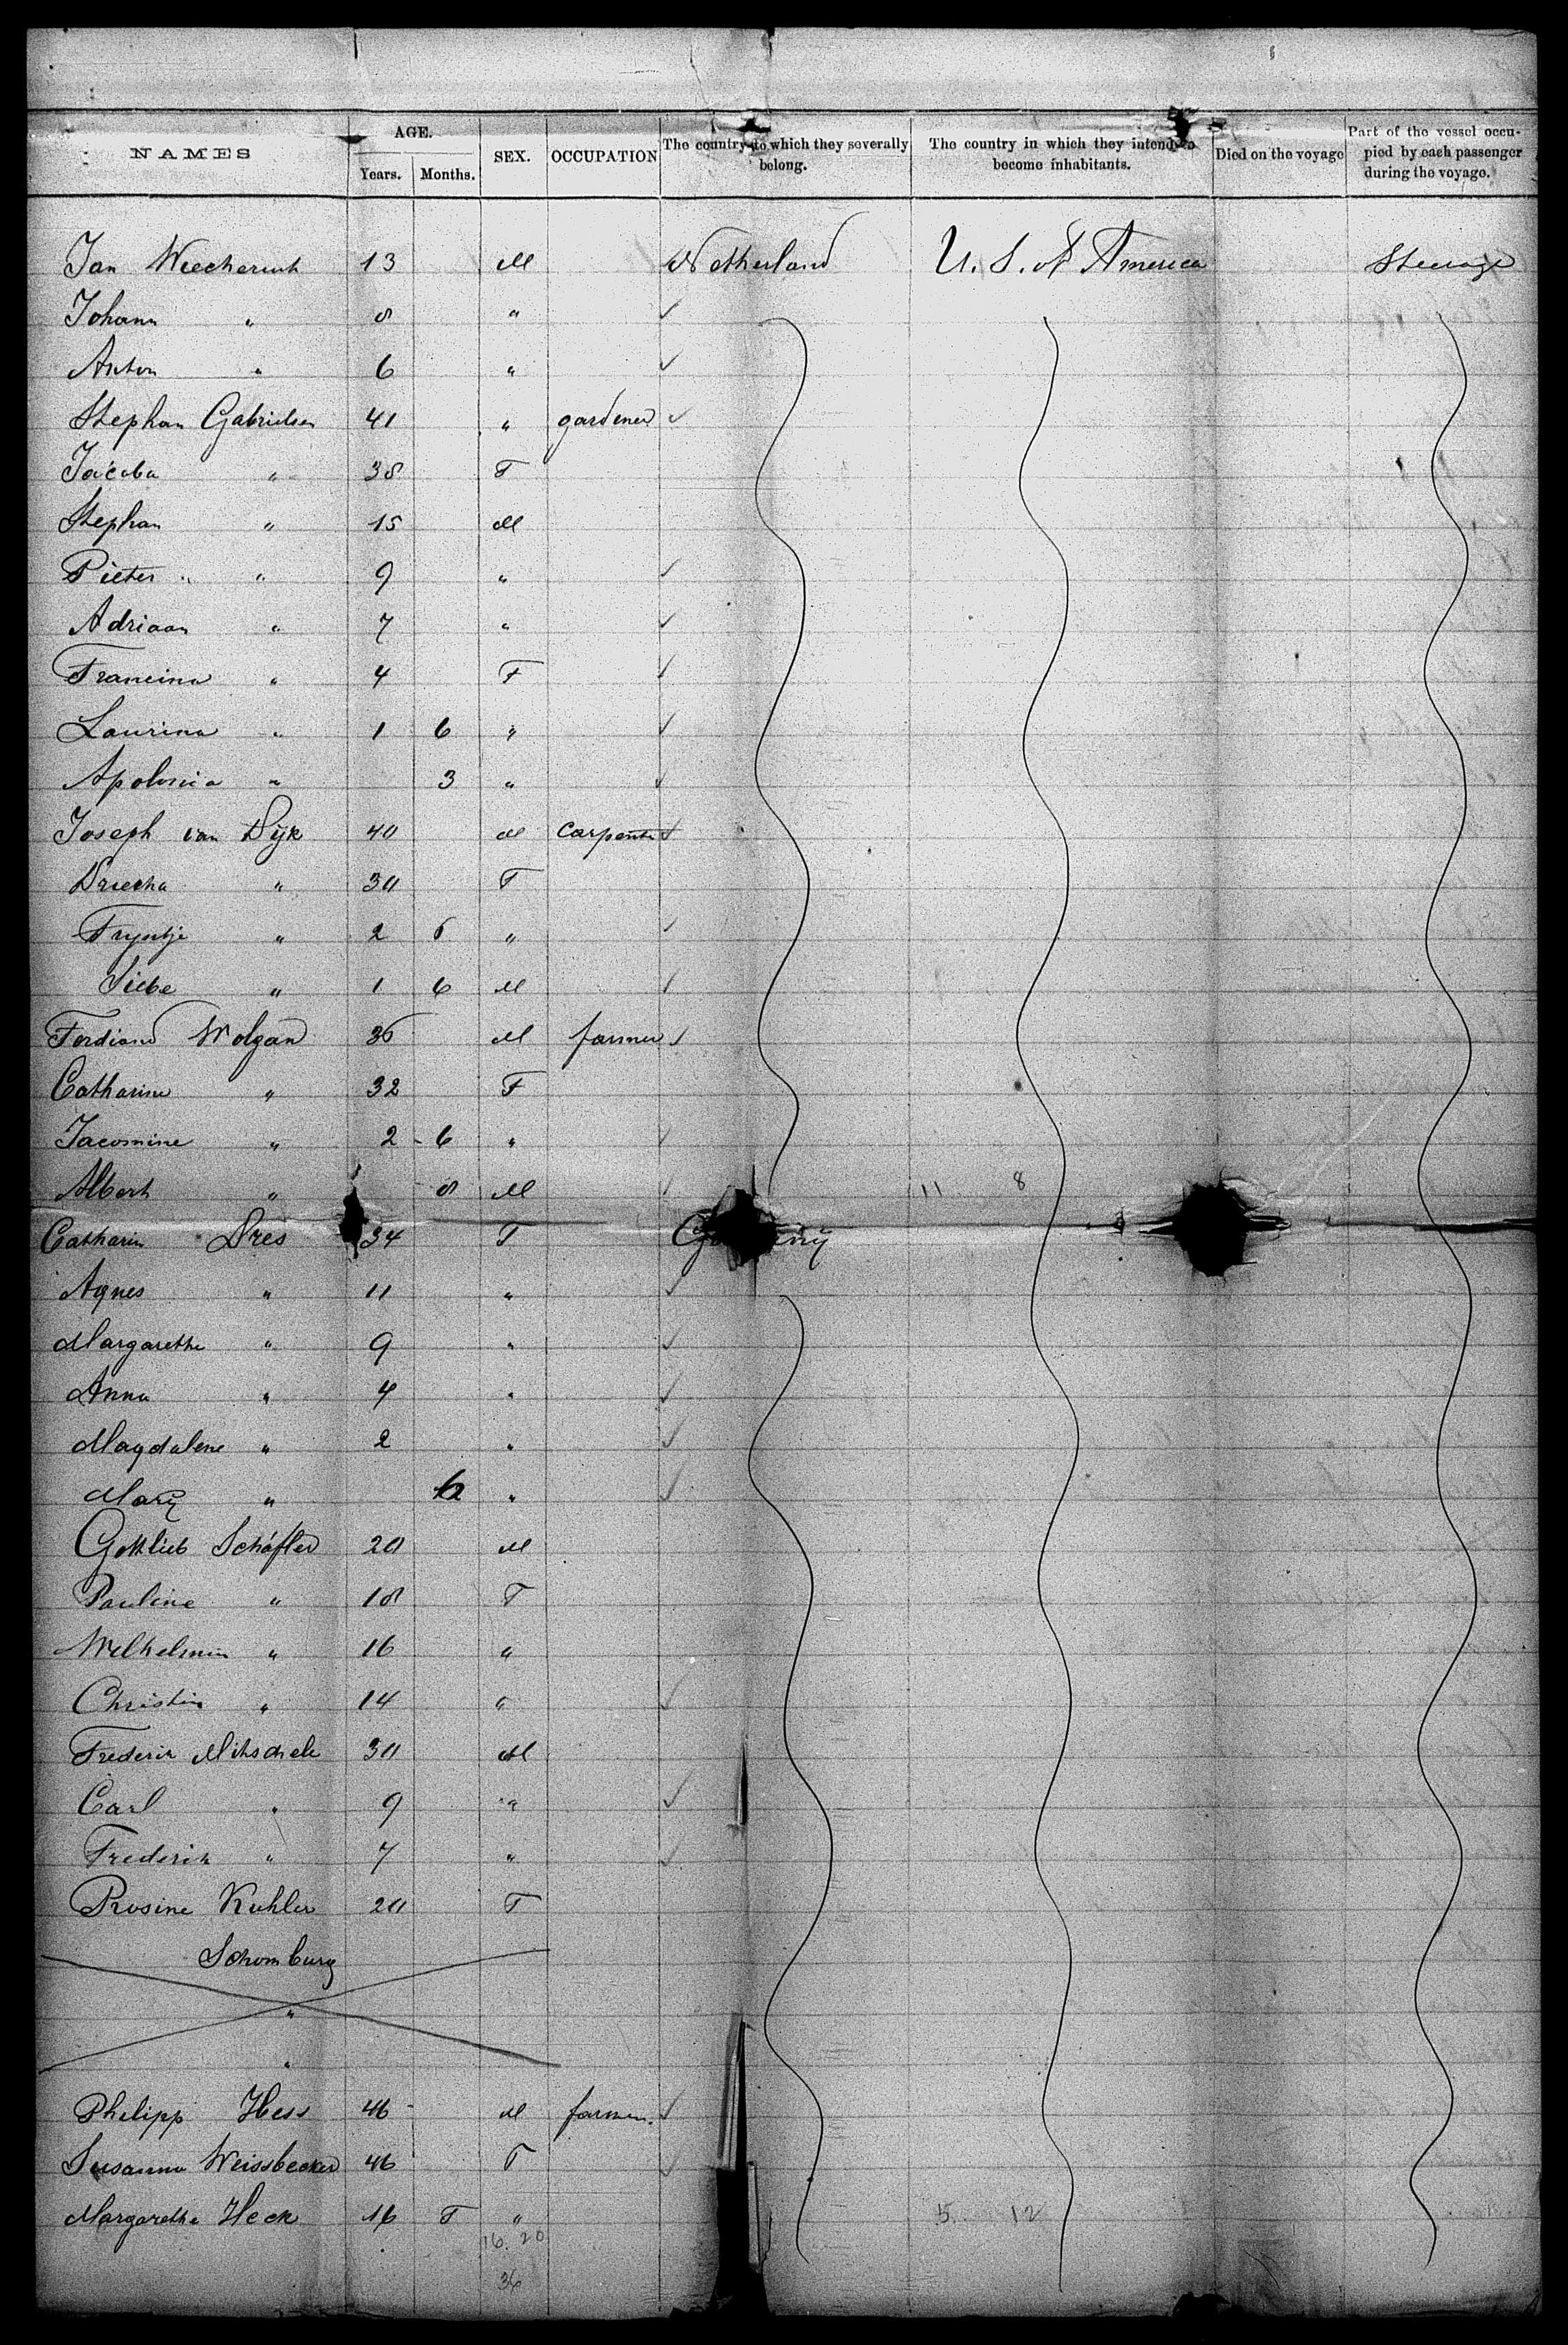 NAMES AGE. Years. Months. SEX. OCCUPATION The country to which they severally belong. The country in which they intend to become inhabitants. Died on the voyage Part of the vessel occupied by each passenger during the voyage.
Jan Wiecherink 13 M Netherland U. S. of America Steerage
Johann " 8 "
Anton " 6 "
Stephan Gabrielsen 41 " gardener
Jacoba " 38 F
Stephan " 15 M
Pieter " " 9 "
Adriaan " 7 "
Francina " 4 F
Laurina " 1 6 "
Apolonia " 3 "
Joseph van Dijk 40 M carpenter
Driecha " 30 F
Tryntje " 2 6 "
Siebe " 1 6 M
Ferdinand Wolgan 36 M farmer
Catharine " 32 F
Jacomine " 2 - 6 "
Albert " 8 M 11 8
Catharin Dres 34 F Germany
Agnes " 11 "
Margarethe " 9 "
Anna " 4 "
Magdalene " 2 "
Mary " 6 "
Gottlieb Schäfler 20 M
Pauline " 18 F
Wilhelmin " 16 "
Christin " 14 "
Frederik Mitschele 30 M
Carl " 9 "
Frederik " 7 "
Rosine Kuhler 20 F
Schomburg
"
"
Philipp Hess 46 M farmer.
Susanna Weissbecker 46 F
Margarethe Heck 16 F " 5. 12
16. 20
36